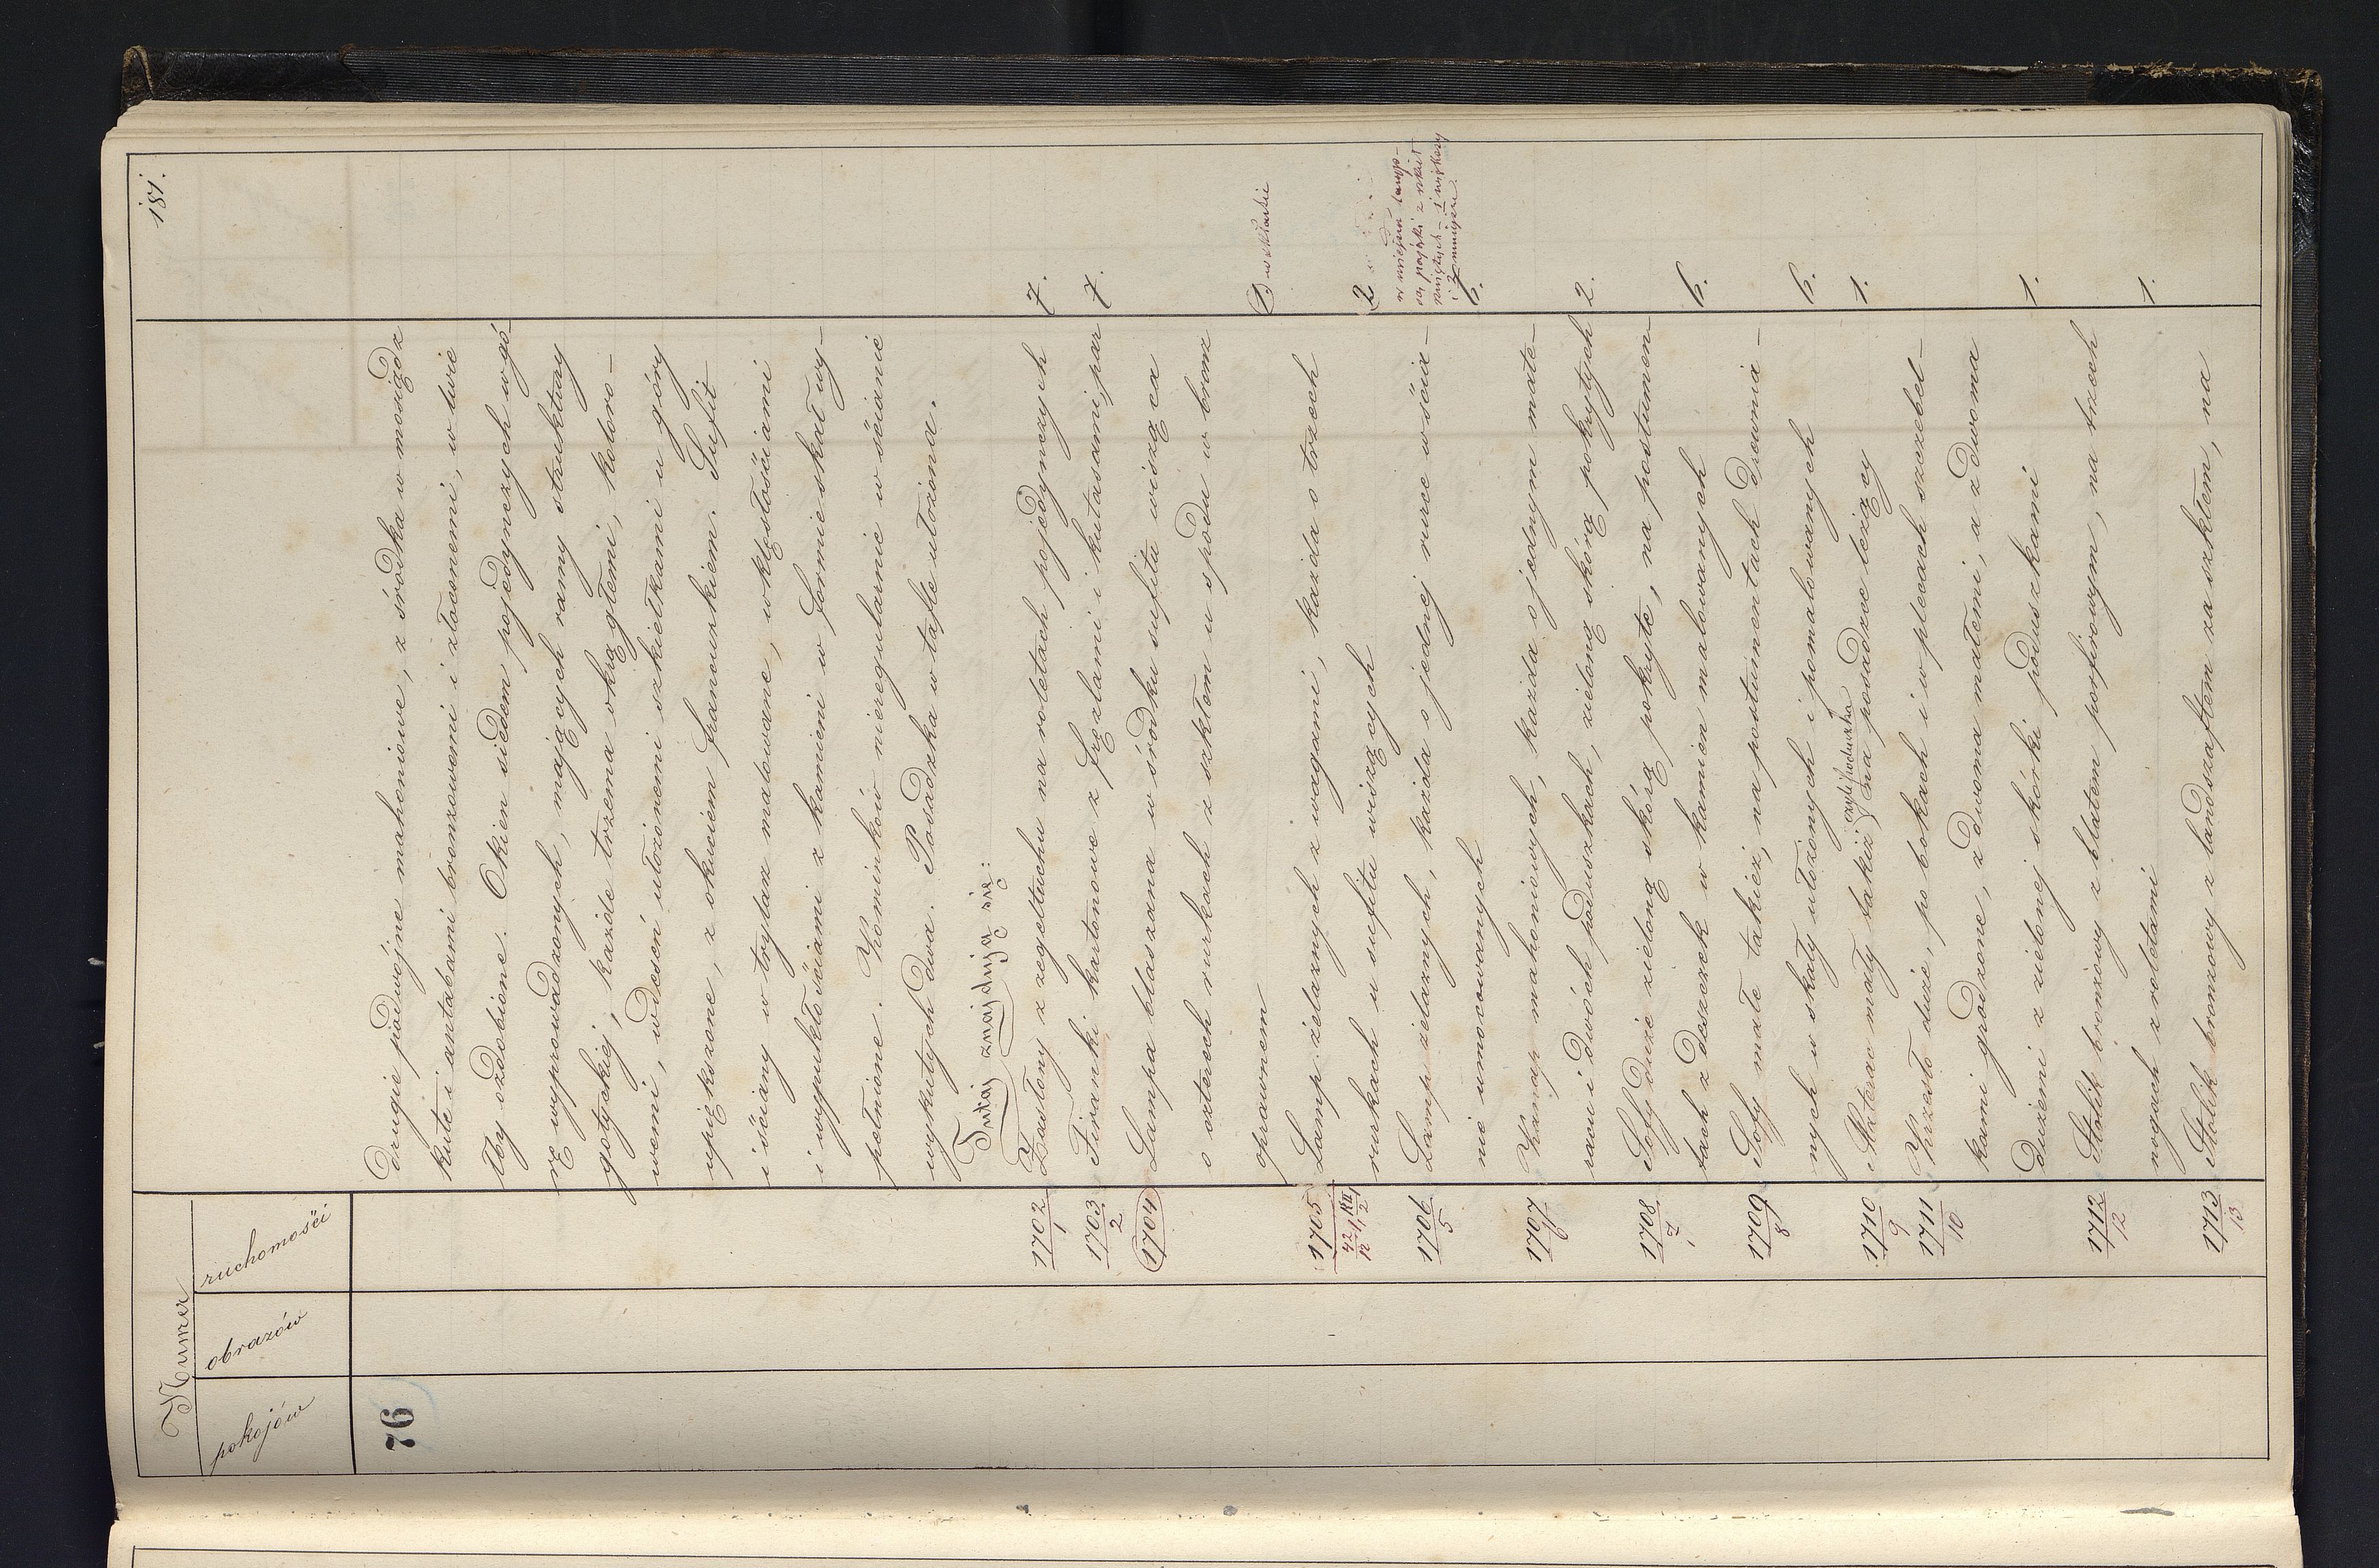 181.
Numer
pokojów
obrazów
ruchomości
76
drugie podwójne mahoniowe, z środka w mosiądz
kute i antabami bronzowemi i złoconemi, w twie
łby ozdobione. Okien siedem pojedynczych w gó
rę wyprowadzonych, mających ramy struktury
gotyckiej, każde trzema okrągłemi, koloro-
wemi, w deseń ułożonemi szkiełkami u góry
upiększone, z okuciem francuzkiem. Sufit
i ściany w trylaż malowane, wklęsłościami
i wypukłościami z kamieni w formie skał wy-
pełnione. Kominków nieregularnie w ścianie
wykutych dwa. Posadzka w tafle ułożona.
Tutaj znajdują się:
1702
1
Zasłony z zegeltuchu na roletach pojedynczych
7.
1703
2
Firanki kartonowe z fręzlami i kutasami, par
7.
1704
Lampa blaszana w środku sufitu wisząca
o czterech rurkach z szkłem u spodu w bronz
oprawnem
1 w składzie
1705
Lamp żelaznych z wagami, każda o trzech
rurkach u sufitu wiszących
2
1706
5
Lamp żelaznych, każda o jednej rurce w ścia-
nie umocowanych
6.
1707
6
Kanap mahoniowych, każda o jednym mate-
racu i dwóch poduszkach, zieloną skórą pokrytych
2.
1708
7
Sofy duże zieloną skórą pokyte, na postumen-
tach z deszczek w kamien malowanych
6.
1709
8
Sofy małe takież, na postumentach drewnia-
nych w skały ułożonych i pomalowanych
6.
1710
9
Materac mały takiż czyli poduszka na posadzce leżący
1.
1711
10
Krzesło duże, po bokach i w plecach szczebel-
kami grodzone, z dwoma małemi, a z dwoma
dużemi z zielonej skórki poduszkami
1.
1712
12
Stolik bronzowy z blatem porfirowym, na trzech
nogach z roletami
1.
1713
13
Stolik bronzowy z landszaftem za szkłem, na